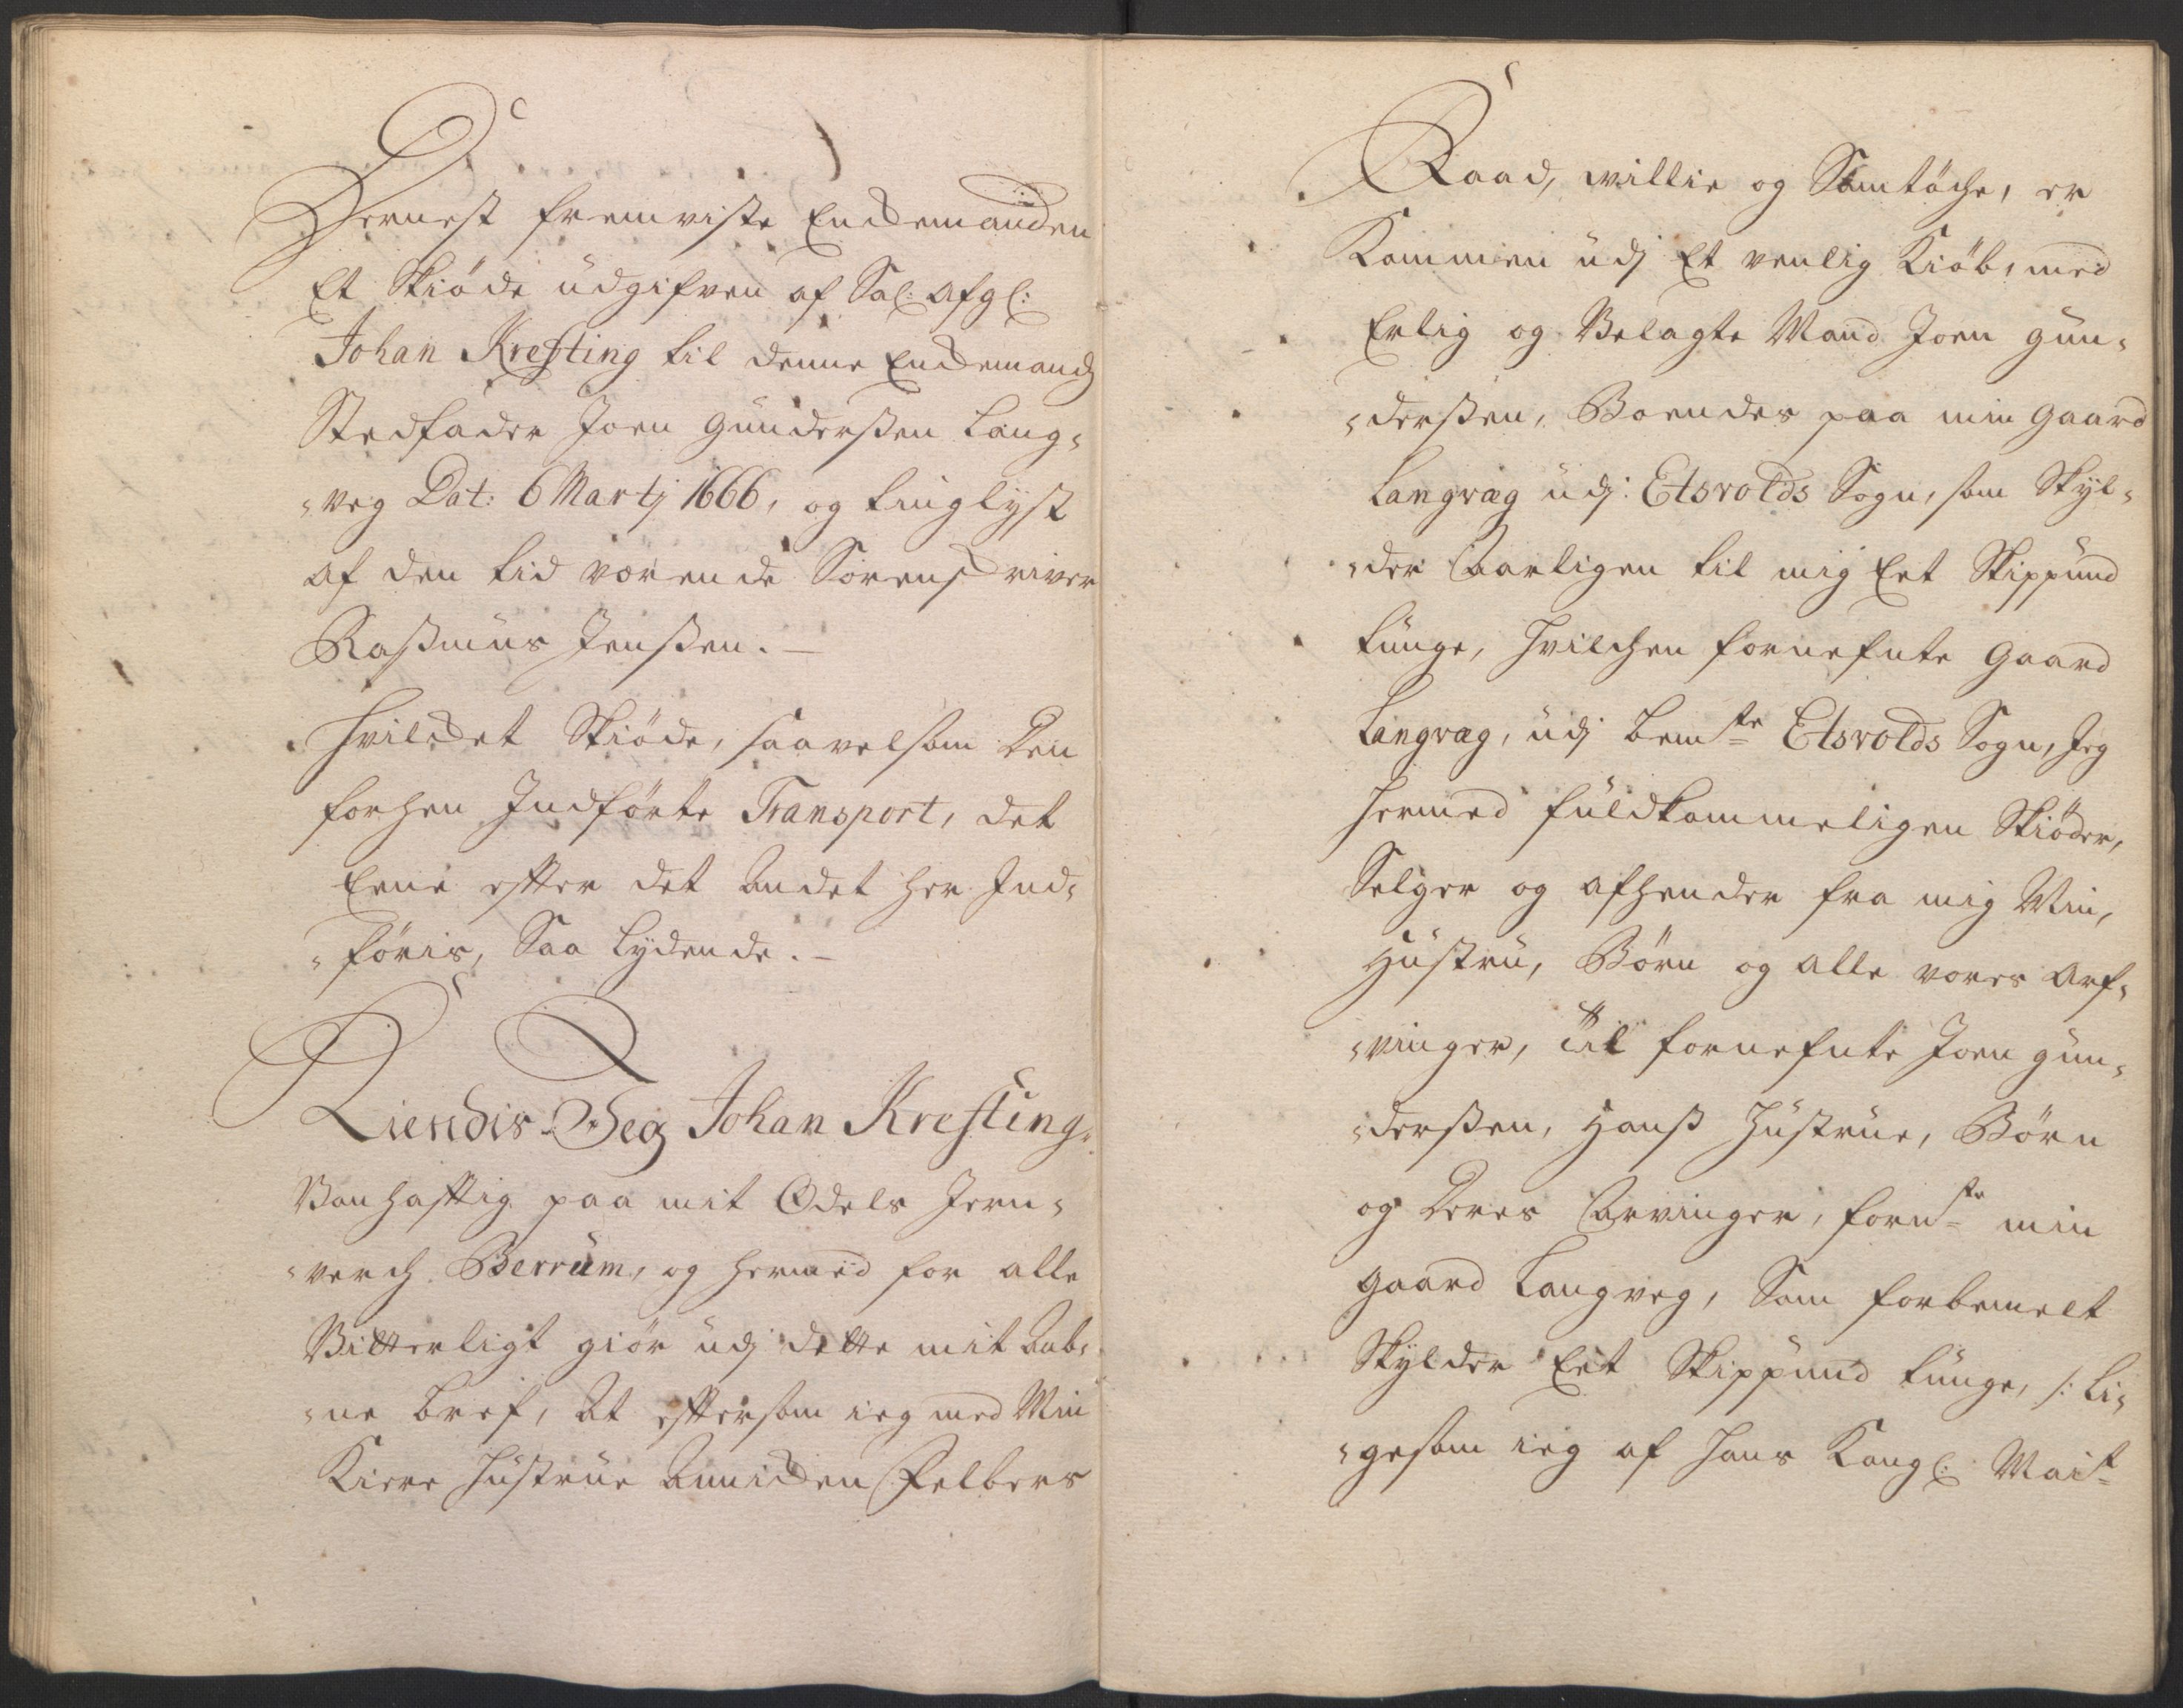 Dernest fremviste Enchemanden
Et Skiöde üdgifven af Sal: afgl:
Johan Krefting til denne Enchemands
Stedfader Joen Gündersßen Lang¬
¬veg Dat: 6 Martj 1666, og tinglyst
af den tid værende Sorenschriver
Rasmüs Jenßen. —
Hvilchet Skiöde, saavelsom den
forhen Indförte Transport, det
Eene effter det Andet her Ind¬
¬föris, Saa Lydende. —
Kiendis Jeg Johan Krefting
Bonhafftig paa mit Odels Jern¬
¬verch Berrüm, og hermed for alle
Vitterligt giör üdj dette mit Aab¬
¬ne bref, At efftersom ieg med Min
Kiere Hüstrüe Annichen Felbers
Raad, willie og Samtöche, er
Kommen üdj Et venlig Kiöb, med
Erlig og Velagte Mand Joen Gün¬
¬derßen, Boendes paa min Gaard
Langvæg üdj Edsvolds Sogn, som Skyl¬
¬der Aarligen til mig Eet Skippünd
tünge, hvilchen fornefnte Gaard
Langvæg, üdj bemte Edsvolds Sogn, Jeg
hermed füldkommeligen Skiöder,
Selger og afhender fra mig Min,
Hüstrü, Börn og alle vores Arf¬
¬vinger, til fornefnte Joen Gün¬
¬derßen, Hanß Hüstrüe, Börn
og Deres Arvinger, fornte min
Gaard Langveg, Som forbemelt
Skylder Eet Skippünd tünge, /: Li¬
¬gesom ieg af Hans Kongl: Mait